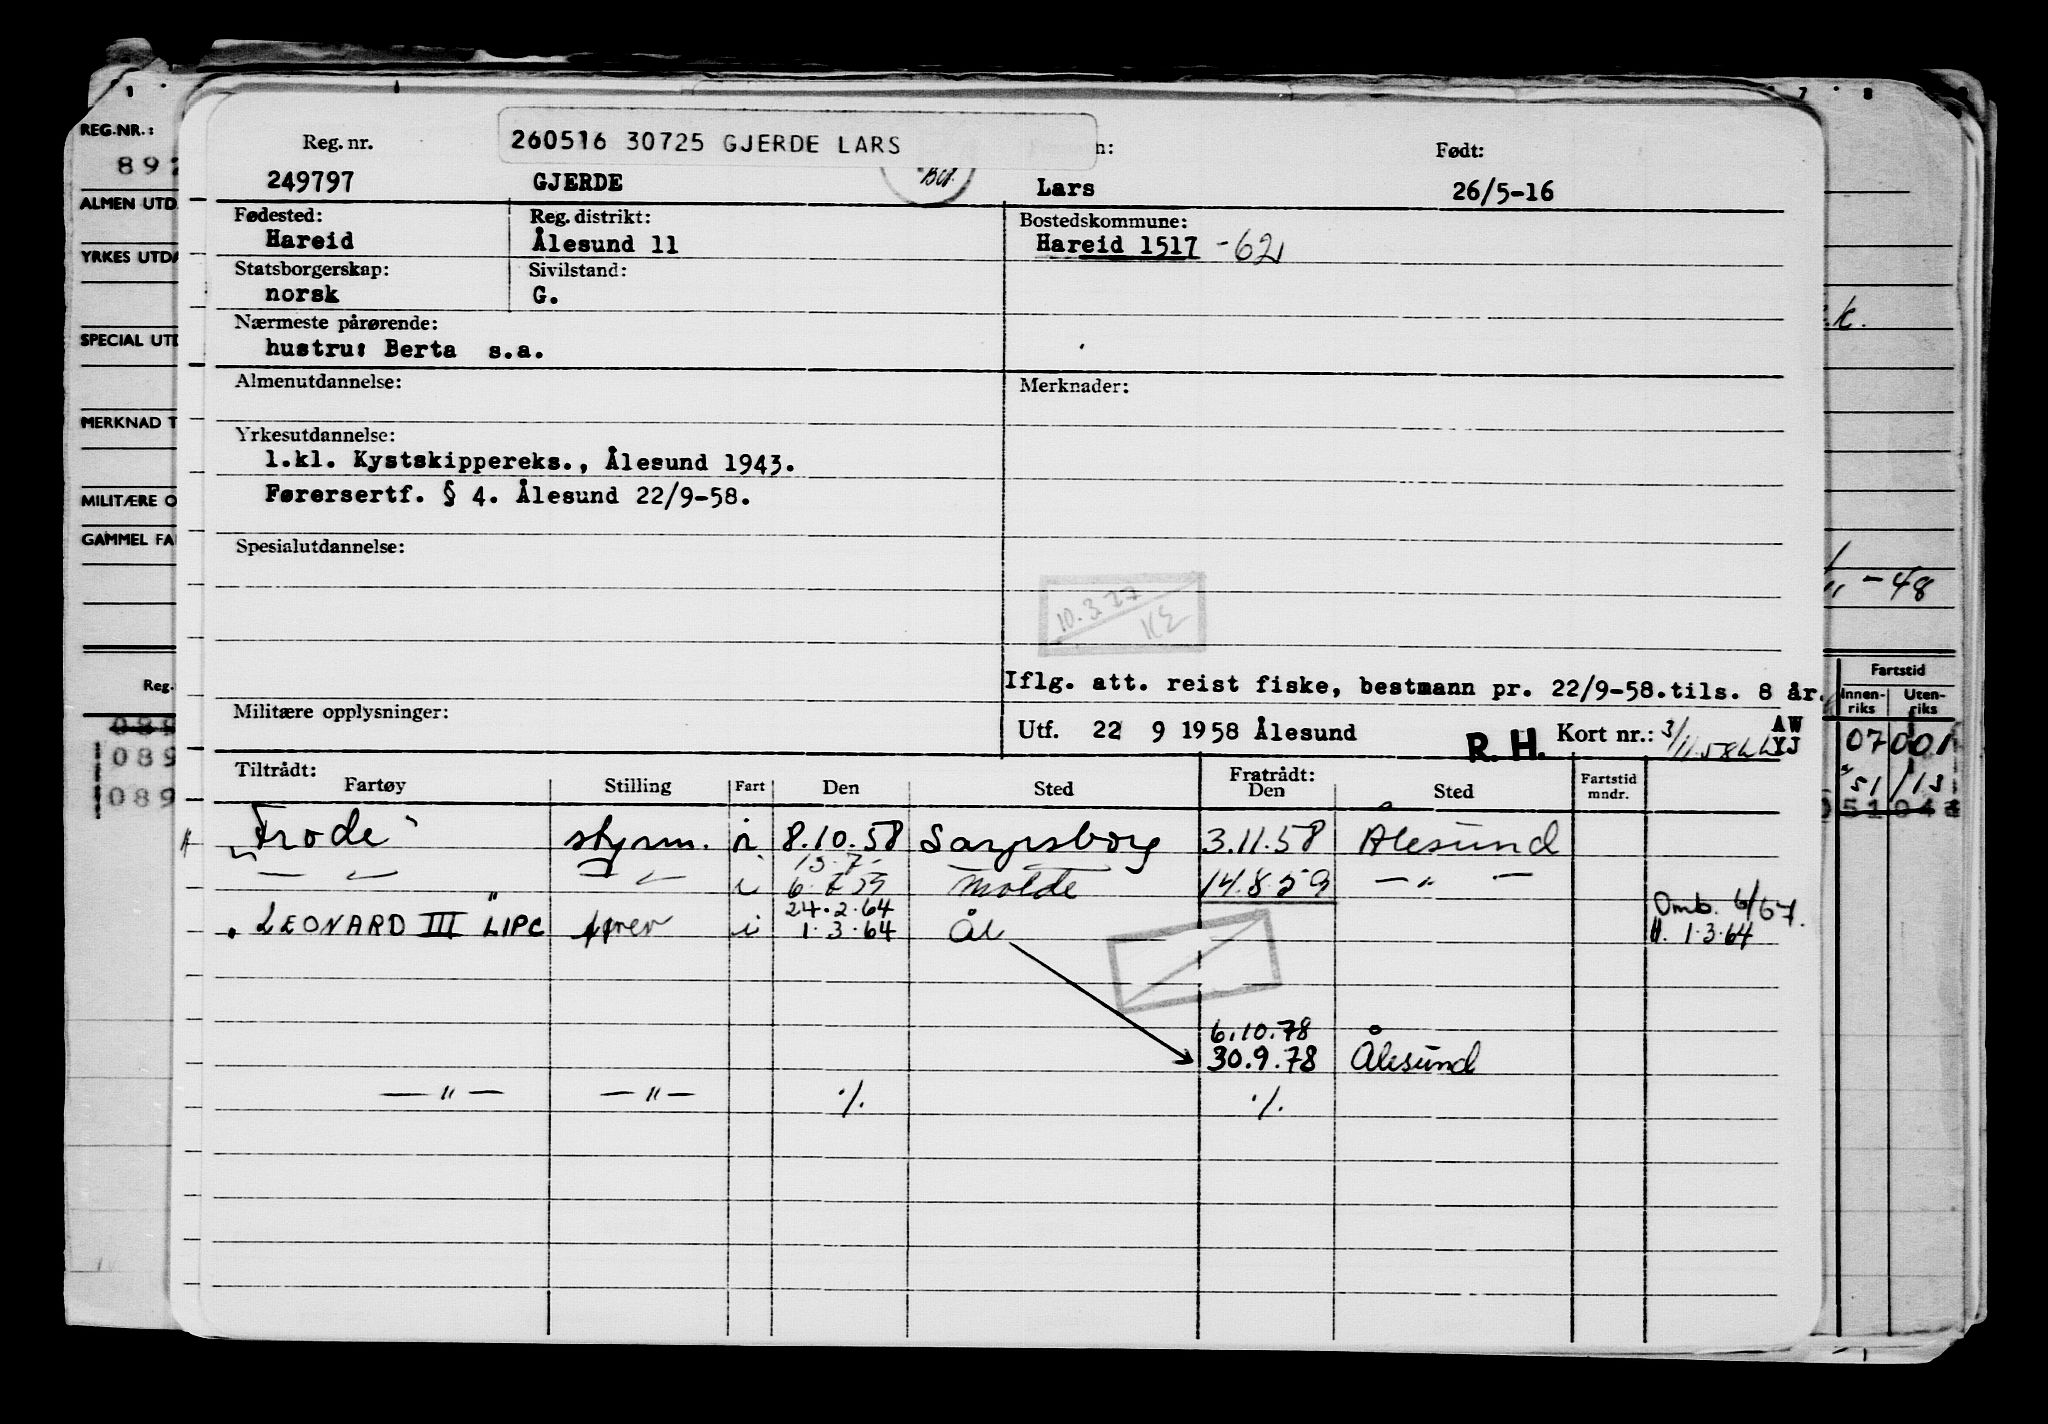 260516 30725 GJERDE LARS
Reg. nr. n: Født:
249797 GJERDE Lars 26/5-16
Fødested: Reg. distrikt: Bostedskommune:
Hareid Ålesund 11 Hareid 1517 -62
Statsborgerskap: Sivilstand:
norsk G.
Nærmeste pårørende:
hustru: Berta s.a.
Almenutdannelse: Merknader:
Yrkesutdannelse:
1.kl. Kystskippereks., Ålesund 1943.
Førersertf. § 4. Ålesund 22/9-58.
Spesialutdannelse:
10.3.77
KE
Iflg. att. reist fiske, bestmann pr. 22/9-58.tils. 8 år.
Militære opplysninger: Utf. 22 9 1958 Ålesund R. H. Kort nr.: AW
YJ
Tiltrådt: Fratrådt:
Fartøy Stilling Fart Den Sted Den Sted Fartstid mndr.
"Frode" styrm. i 8.10.58 Sarpsborg 3.11.58 Ålesund
— " — i Molde 14.8.59 — " —
24.2.64 Omb. 6/67.
"LEONARD III" LIPC i 1.3.64 Ål H. 1.3.64
6.10.78
30.9.78 Ålesund
— " — — " — ./. ./.
REG.NR.:
892
ALMEN UTD
YRKES UTDA
SPECIAL UTD
MERKNAD T
MILITÆRE O
GAMMEL FA
Reg.
089
089
089
7 8
.k.
" -48
Fartstid
Innen-
riks Uten-
riks
07 001
51 13
51 043